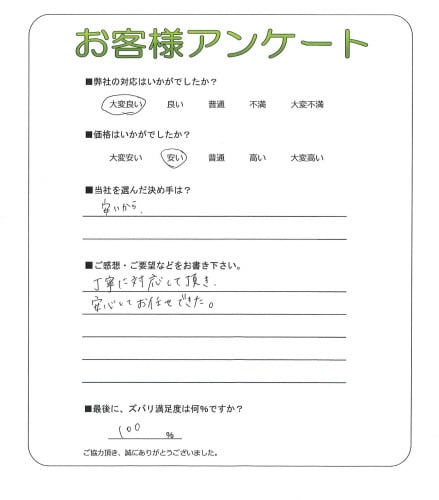 お客様アンケート
■弊社の対応はいかがでしたか？
大変良い 良い 普通 不満 大変不満
■価格はいかがでしたか？
大変安い 安い 普通 高い 大変高い
■当社を選んだ決め手は？
安いから、
■ご感想・ご要望などをお書き下さい。
丁寧に対応して頂き、
安心してお任せできた。
■最後に、ズバリ満足度は何%ですか？
100 %
ご協力頂き、誠にありがとうございました。